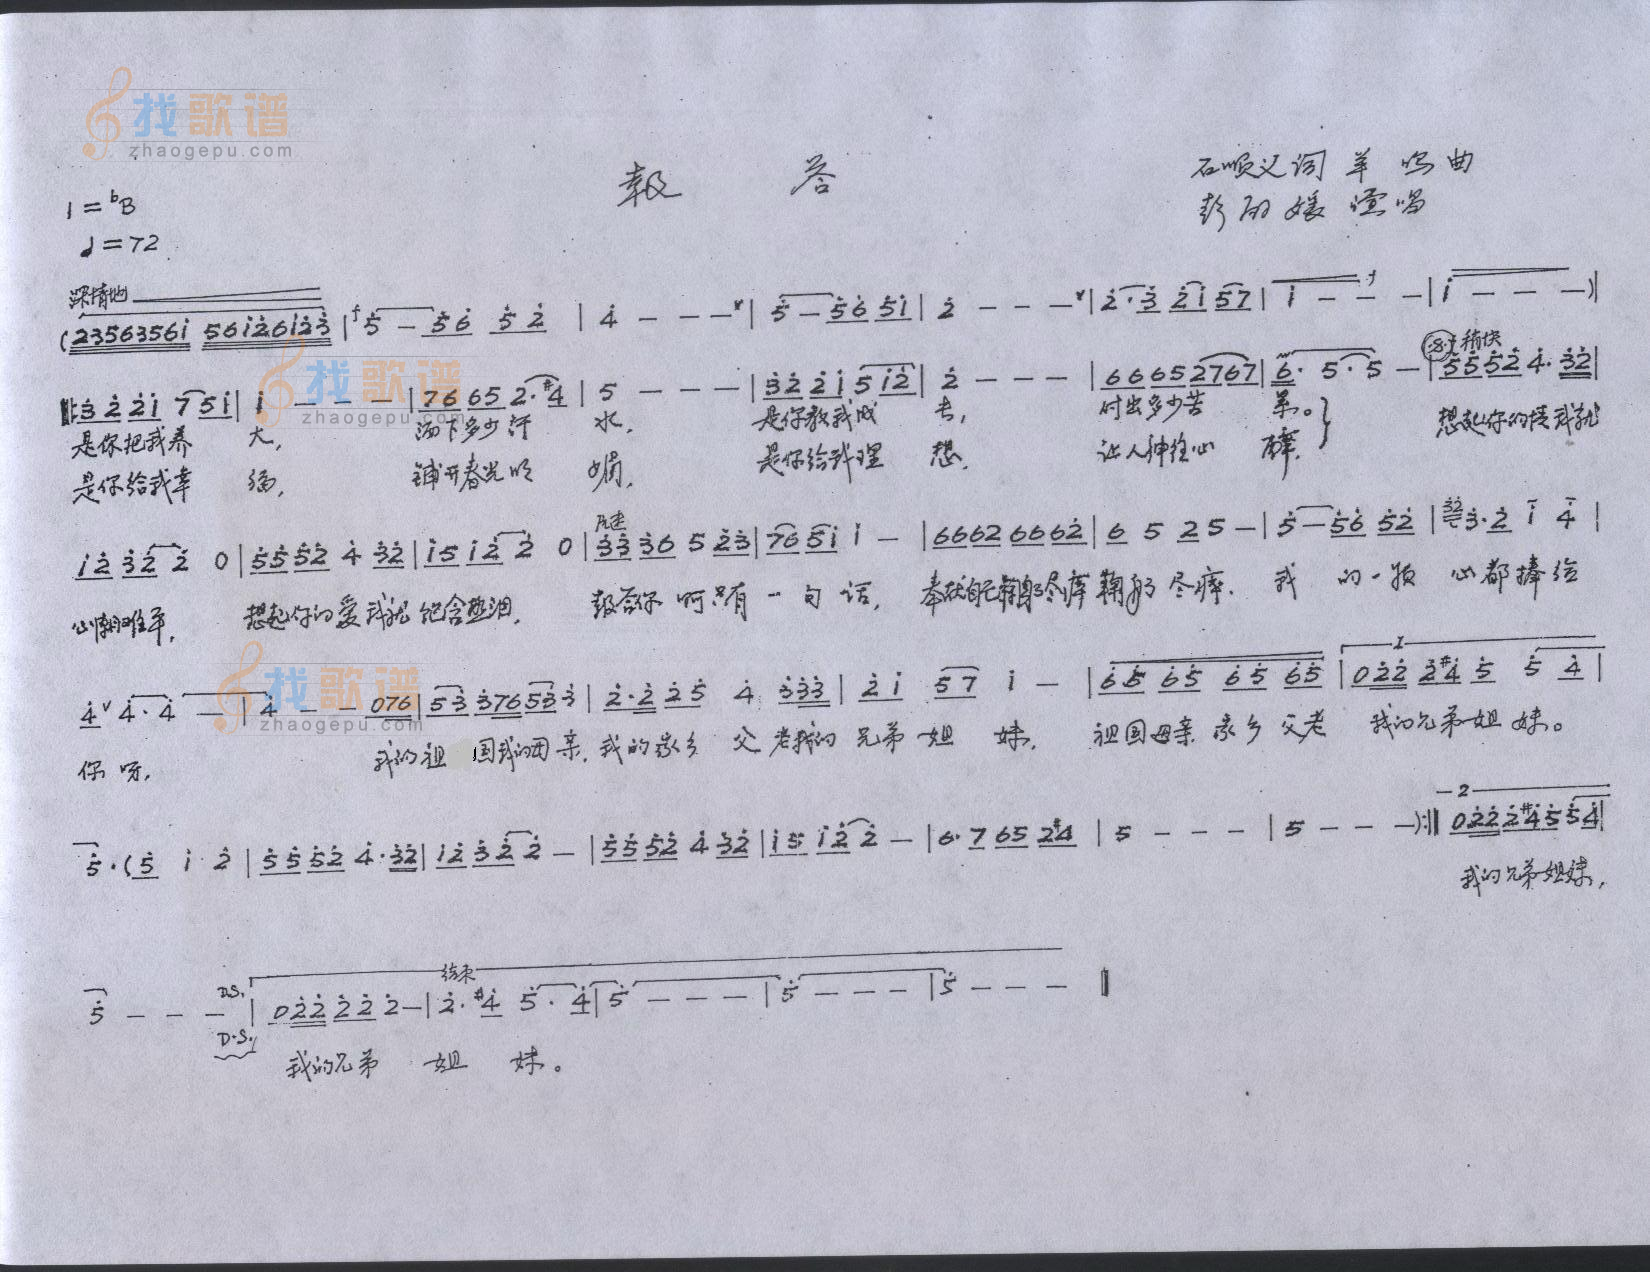 找歌谱
zhaogepu.com
报 答
石顺义词 羊鸣曲
彭丽媛演唱
1=bB
♩=72
深情地
(23563561 56126123 | f 5 - 56 52 | 4 - - - | 5 - 56 51 | 2 - - - | 2·3 21 57 | 1 - - - | 1 - - - )|
找歌谱
zhaogepu.com
稍快
‖: 3 2 21 7 51 | 1 - - - | 76 65 2·#4 | 5 - - - | 32 21 512 | 2 - - - | 6665 2767 | 6· 5·5 - | 55 52 4· 32 |
是你把我养 大, 洒下多少汗 水, 是你教我成 长, 付出多少苦 累。 想起你的情我就
是你给我幸 福, 铺开春光明 媚, 是你给我理 想, 让人神往心 醉,
12 32 2 0 | 55 52 4 32 | 15 12 2 0 | 33 36 5 23 | 76 51 1 - | 6662 6662 | 6 5 25 - | 5 - 56 52 | 3·2 1 4 |
心潮难平, 想起你的爱我就饱含热泪, 报答你啊只有一句话, 奉献自己鞠躬尽瘁鞠躬尽瘁. 我的一颗 心都捧给
找歌谱
zhaogepu.com
4 4·4 - | 4 - - 076 | 53 376 533 | 2·2 25 4 333 | 21 57 1 - | 65 65 65 65 | 022 2#4 5 5 4 |
你呀, 我的祖 国我的母亲, 我的家乡 父老我的 兄弟姐 妹, 祖国母亲家乡父老 我的兄弟姐 妹。
2
5·(5 1 2 | 55 52 4·32 | 12 32 2 - | 55 52 4 32 | 15 12 2 - | 6·7 65 2#4 | 5 - - - | 5 - - - ):‖ 022 2#4 5 54 |
我的兄弟姐妹,
结束
5 - - - D.S. | 022 22 2 - | 2·#4 5·4 | 5 - - - | 5 - - - | 5 - - - ‖
D.S.
我的兄弟 姐 妹。